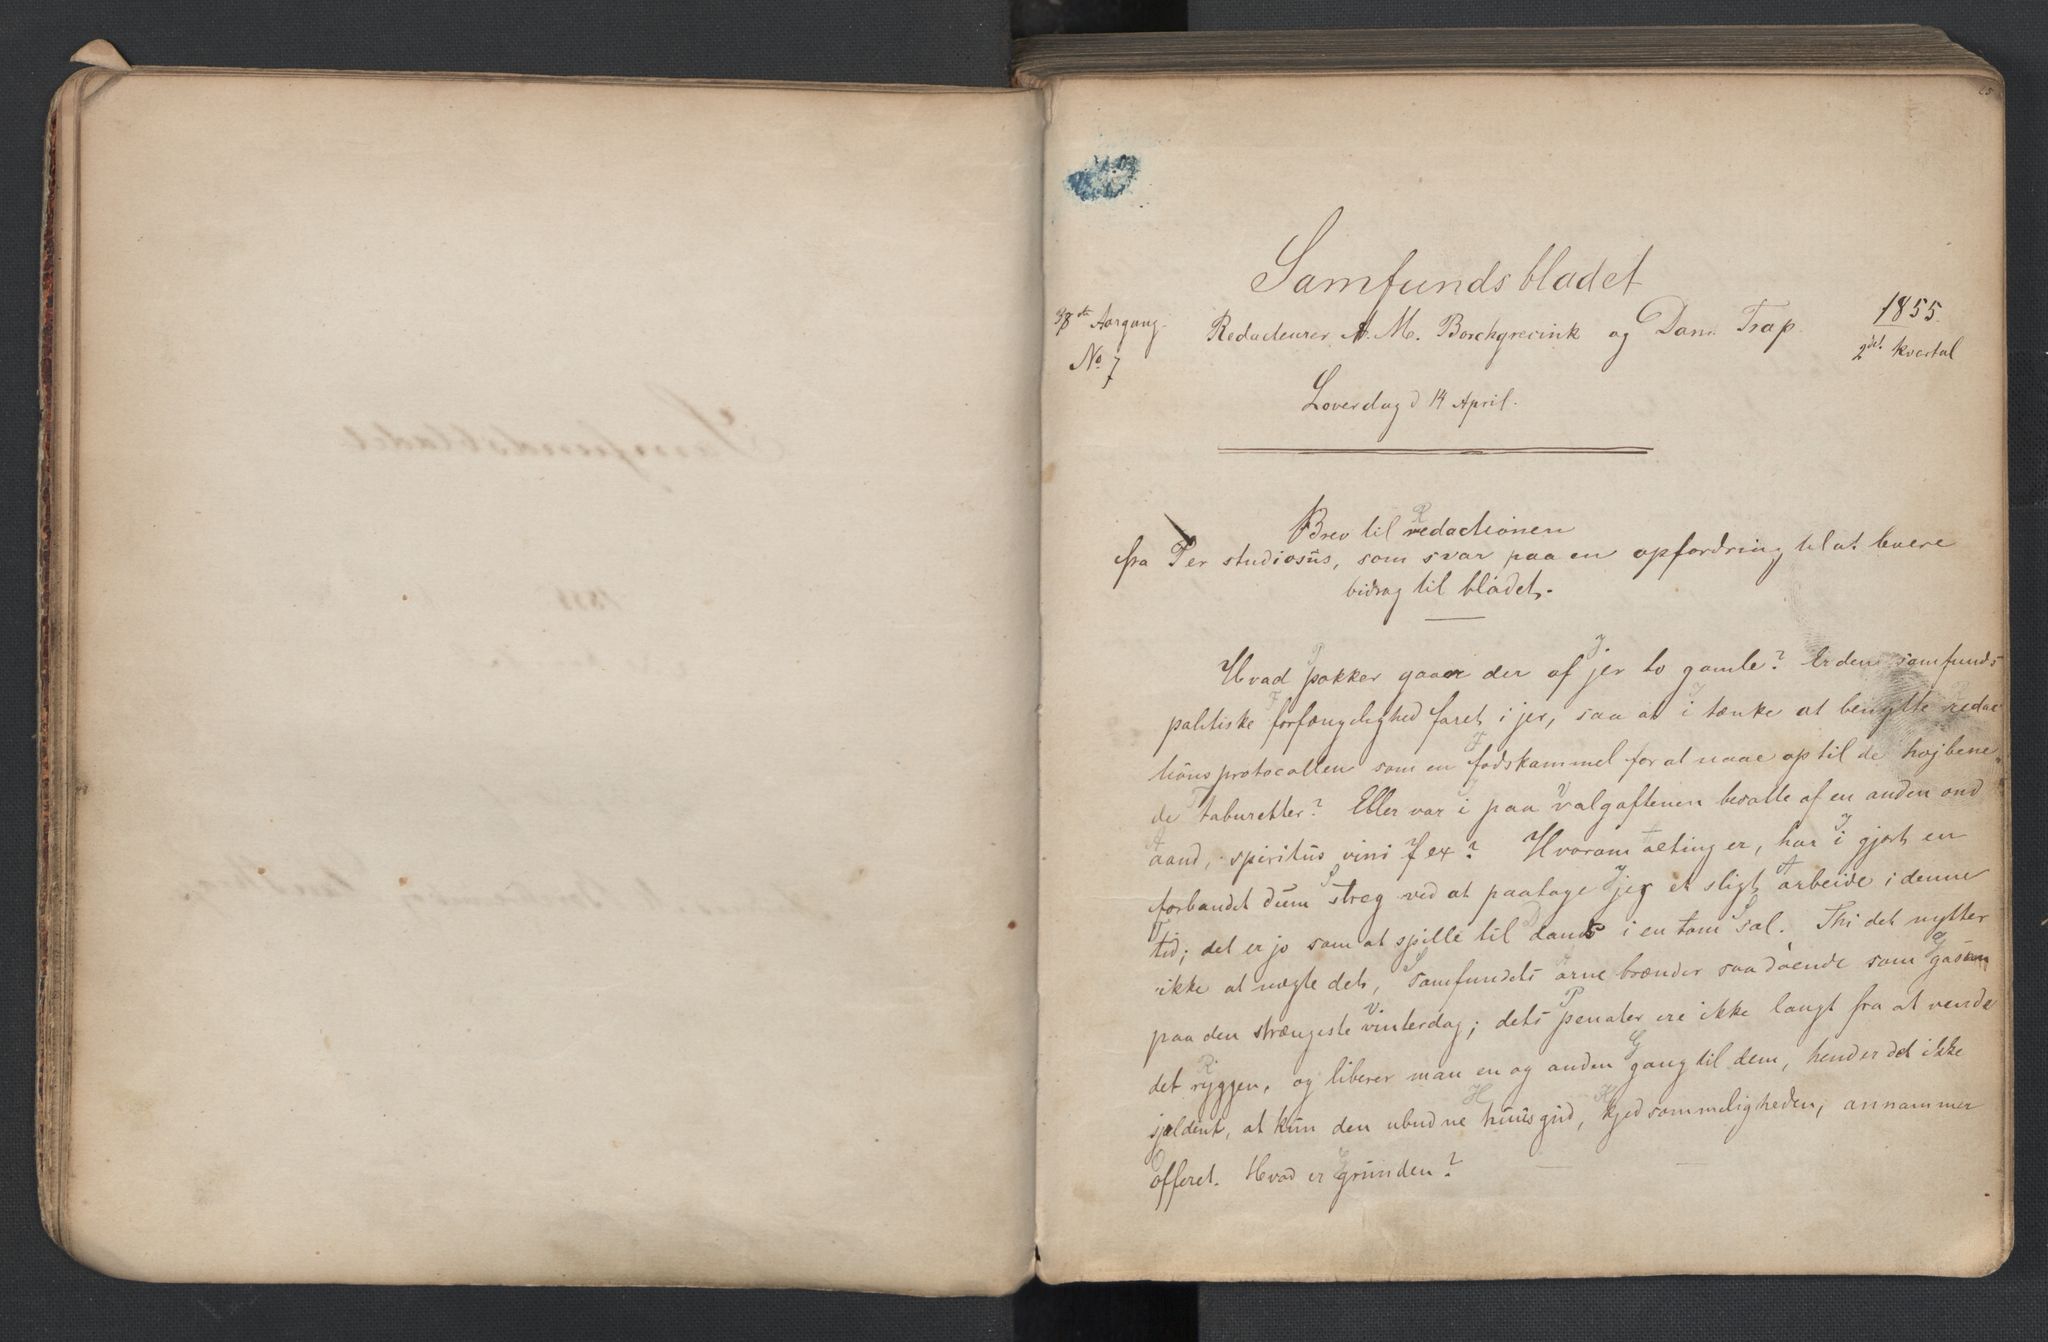 25
Samfundsbladet
38te Aargang.
Redacteurer A. M. Borchgrevink og Dan. Trap.
1855.
No 7
2det kvartal
Løverdag d 14 April.
Brev til redactionen
fra Per studiosus, som svar paa en opfordring til at levere
bidrag til bladet.
Hvad pokker gaaer der af jer to gamle? Er den samfunds-
politiske forfængelighed faret i jer, saa at i tænke at benytte redac-
tionsprotocollen som en fodskammel for at naae op til de højbene-
de taburetter? Eller var i paa valgaftenen besatte af en anden ond
aand, spiritus vini f ex? Hvorom alting er, har i gjort en
forbandet dum streg ved at paatage jer et sligt arbeide i denne
tid; det er jo som at spille til dands i en tom sal. Thi det nytter
ikke at nægte det, samfundets arne brænder saa døende som gasen
paa den strængeste vinterdag; dets penater ere ikke langt fra at vende
det ryggen, og liberer man en og anden gang til dem, hender det ikke
sjeldent, at kun den ubudne huusgud, kjedsommeligheden, annammer
offeret. Hvad er grunden?